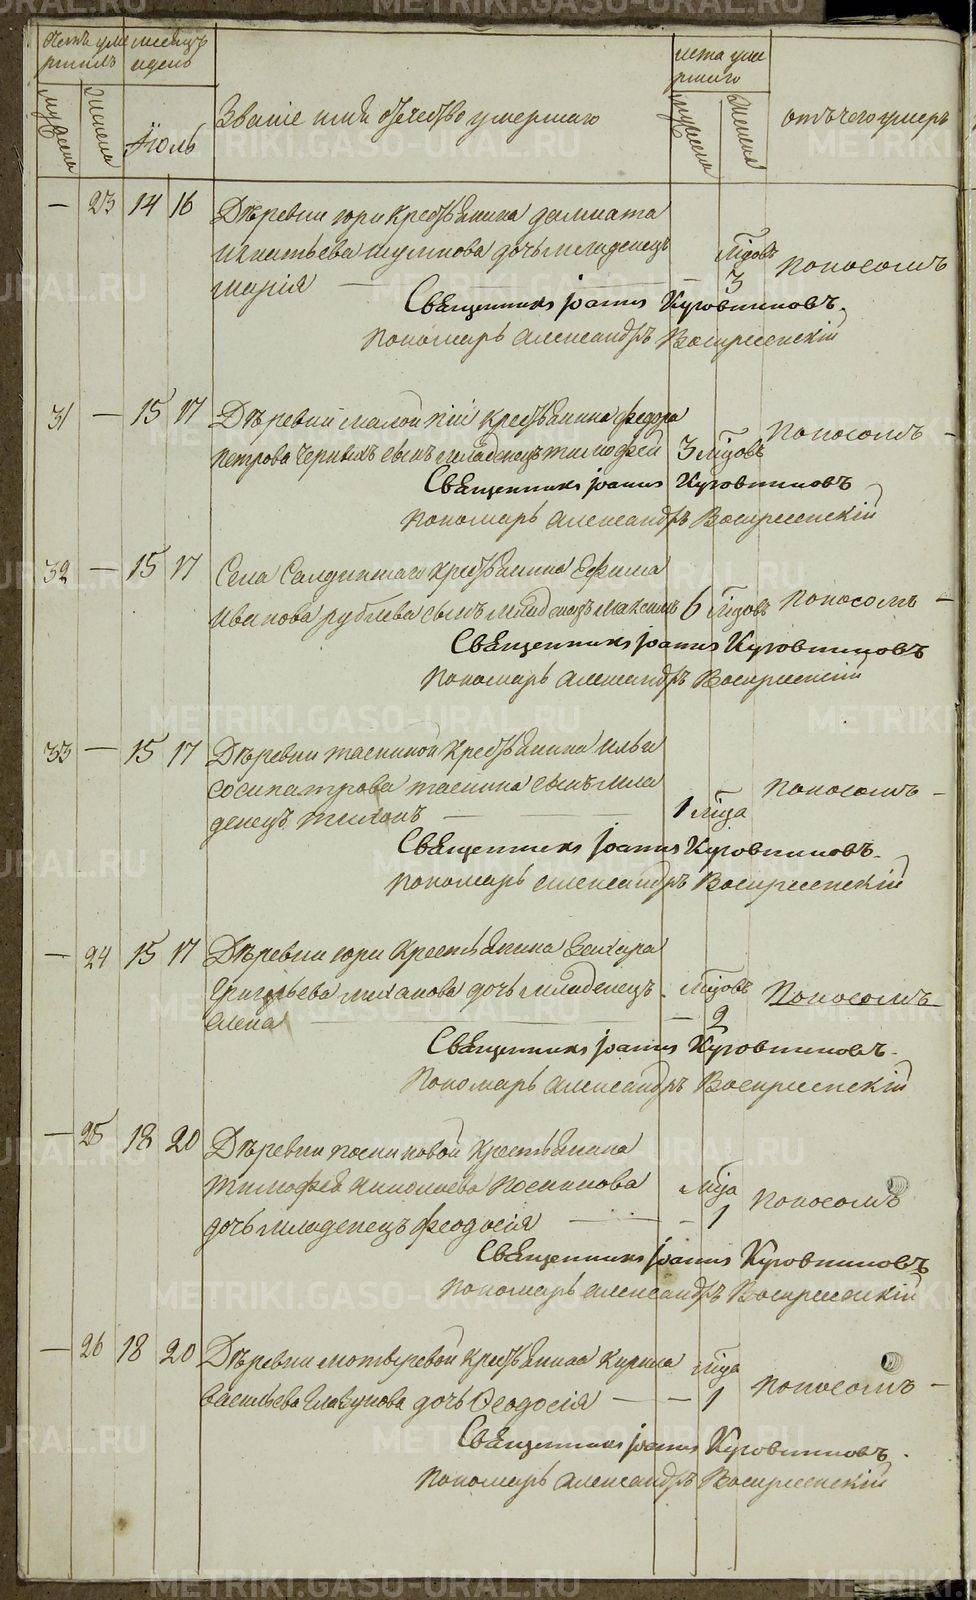 Счетъ умершихъ
месяцъ и день
лета умершаго
мужеска
женска
Июль
Званіе имя отечество умершаго
мужеска
женска
отъ чего умеръ
— 23 14 16 Деревни гори крестьянина далмата
игнатьева дочь младенецъ мѣсяцовъ поносомъ
марія — — 3
Священникъ Іоаннъ Кузовниковъ.
Пономарь Александръ Воскресенскій
31 — 15 17 Деревни малой крестьянина федора поносомъ —
петрова черныхъ сынъ младенецъ тимофей 3 мѣсяцовъ
Священникъ Іоаннъ Кузовниковъ
Пономарь Александръ Воскресенскій
32 — 15 17 Села Салдинскаго крестьянина Ефима
Иванова рублева сынъ младенецъ максимъ 6 мѣсяцовъ поносомъ —
Священникъ Іоаннъ Кузовниковъ
Пономарь Александръ Воскресенскій
33 — 15 17 Деревни крестьянина ильи
сосипатрова сынъ мла поносомъ —
денецъ — 1 мѣсяца
Священникъ Іоаннъ Кузовниковъ.
Пономарь Александръ Воскресенскій
— 24 15 17 Деревни гори крестьянина
Григорьева дочь младенецъ мѣсяцовъ поносомъ
елена — — 2
Священникъ Іоаннъ Кузовниковъ.
Пономарь Александръ Воскресенскій
— 25 18 20 Деревни крестьянина
тимофея николаева дочь мѣсяца поносомъ
младенецъ феодосія — — 1
Священникъ Іоаннъ Кузовниковъ
Пономарь Александръ Воскресенскій
— 26 18 20 Деревни крестьянина Кирила мѣсяца поносомъ —
васильева дочь Феодосія — — 1
Священникъ Іоаннъ Кузовниковъ.
Пономарь Александръ Воскресенскій
METRIKI.GASO-URAL.RU